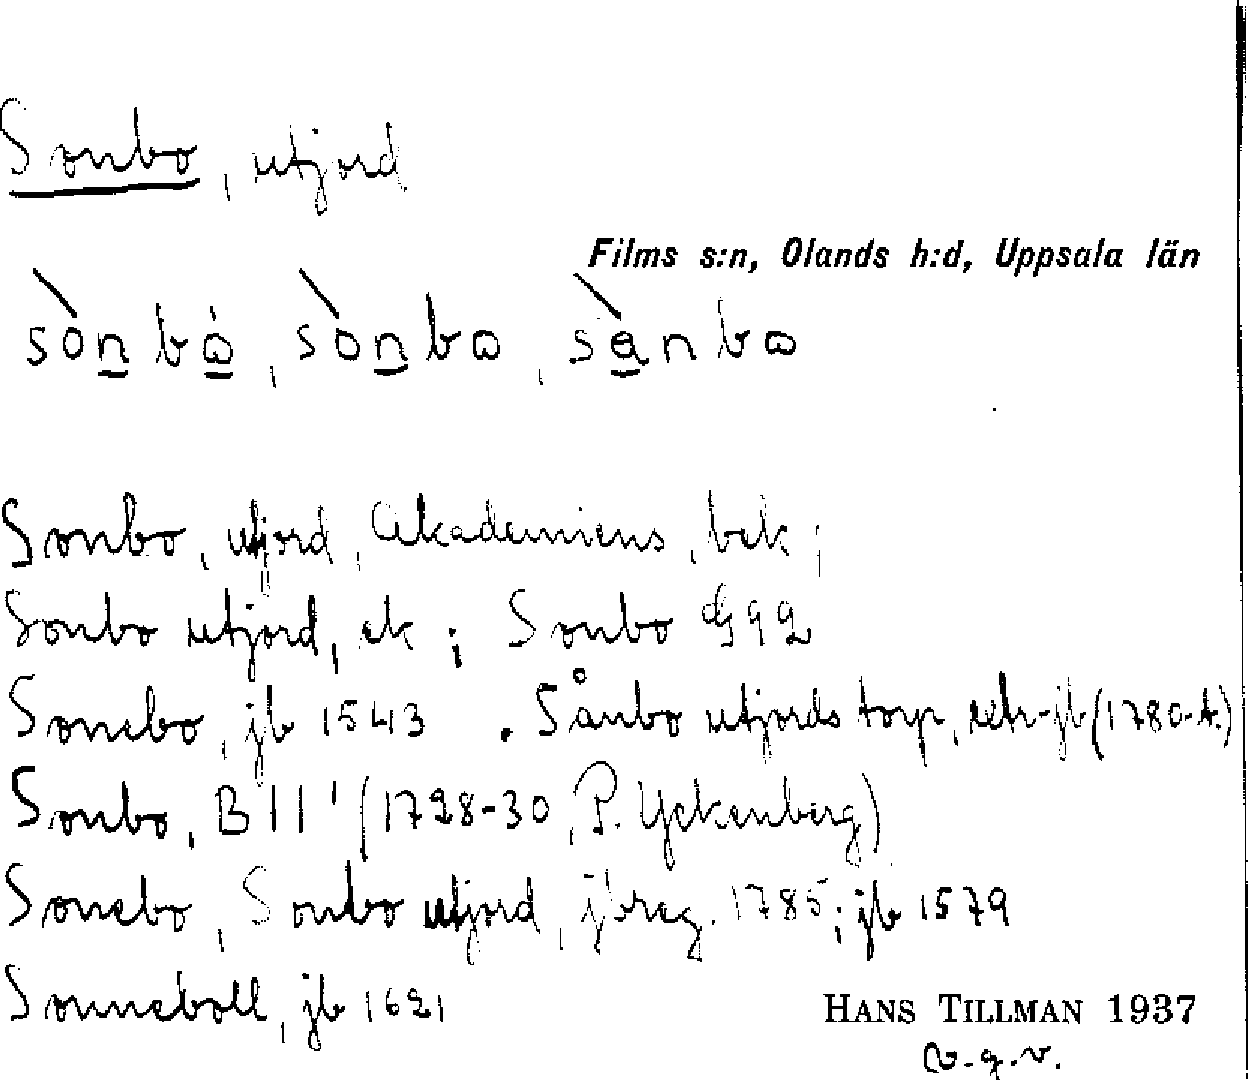 Sonbo, utjord
Films s:n, Olands h:d, Uppsala län
sònbò, sònbo, sànbo
Sonbo, utjord, Akademiens, bek;
Sonbo utjord, ek; Sonbo G92
Sonebo, jb 1543. Sånbo utjords torp, (1780-t.)
Sonbo, B II 1 (1728-30, P. Yckenberg)
Sonebo, Sonbo utjord, jbreg. 1785; jb 1579
Sonneboll, jb 1621
HANS TILLMAN 1937
v.g.v.